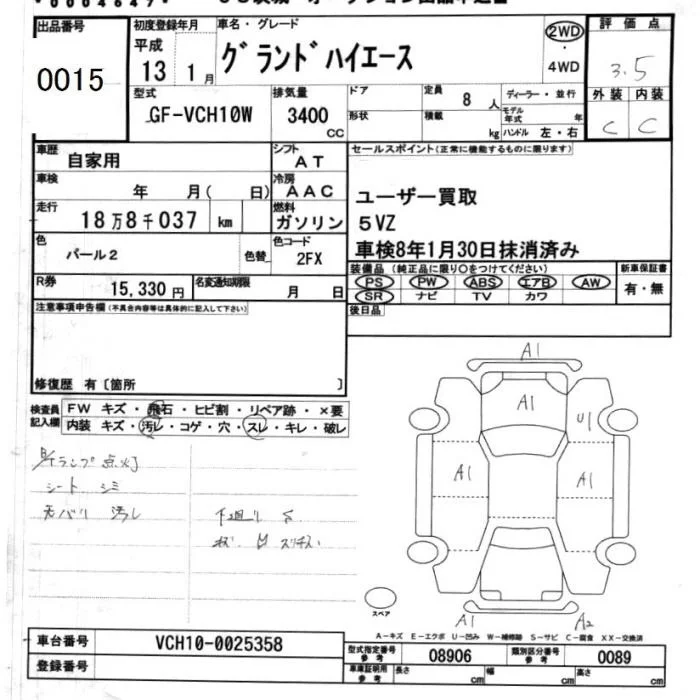 0004647
出品番号
0015
初度登録年月
平成
13 1月
車名・グレード
グランドハイエース
2WD
4WD
評価点
3.5
外装 内装
C C
型式
GF-VCH10W
排気量
3400
CC
ドア
形状
定員
8 人
積載
kg
ディーラー・並行
モデル年式 年
ハンドル 左・右
車歴 自家用
シフト AT
車検 年 月( 日)
冷房 AAC
走行 18万8千037 km
燃料 ガソリン
色 パール2 色替
色コード 2FX
R券 15,330円
名変通知期限 月 日
セールスポイント(正常に機能するものに限ります)
ユーザー買取
5VZ
車検8年1月30日抹消済み
装備品 (純正品に限り○をつけてください)
PS PW ABS エアB AW
SR ナビ TV カワ
新車保証書
有・無
後日品
注意事項申告欄(不具合内容等は具体的に記入して下さい)
修復歴 有〔箇所 〕
検査員記入欄
FW キズ・飛石・ヒビ割・リペア跡・×要
内装 キズ・汚レ・コゲ・穴・スレ・キレ・破レ
ランプ点灯
シート シミ
天バリ 汚レ
下廻り S
A1
A1
U1
A1
A1
A1
A2
スペア
A-キズ E-エクボ U-凹み W-補修跡 S-サビ C-腐食 XX-交換済
車台番号 VCH10-0025358
登録番号
型式指定番号 参考 08906
類別区分番号 参考 0089
車庫証明用 参考 長さ cm 幅 cm 高さ cm